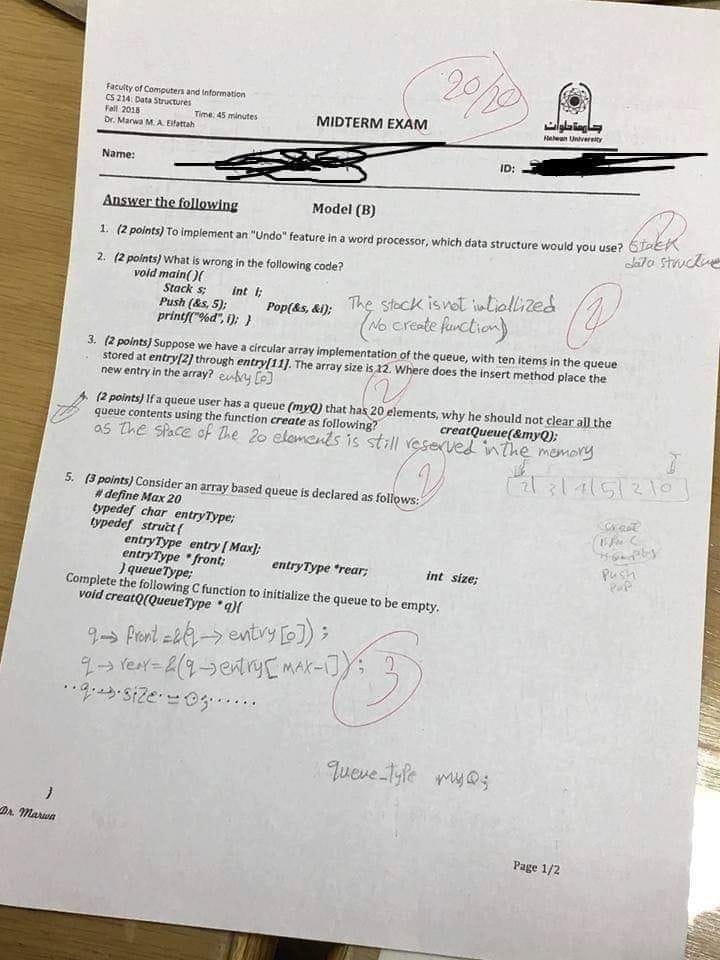 20/20
Faculty of Computers and Information
CS 214: Data Structures
Fall 2018 Time: 45 minutes
Dr. Marwa M. A. Elfattah
MIDTERM EXAM
Helwan University
Name:
ID:
Answer the following
Model (B)
1. (2 points) To implement an "Undo" feature in a word processor, which data structure would you use? Stack
data structure
2
2. (2 points) What is wrong in the following code?
void main(){
Stack s; int i;
Push (&s, 5); Pop(&s, &i);
printf("%d", i); }
The stack is not intiallized
(No create function)
2
3. (2 points) Suppose we have a circular array implementation of the queue, with ten items in the queue
stored at entry[2] through entry[11]. The array size is 12. Where does the insert method place the
new entry in the array? entry [0]
2
4. (2 points) If a queue user has a queue (myQ) that has 20 elements, why he should not clear all the
queue contents using the function create as following? creatQueue(&myQ);
as the space of the 20 elements is still reserved in the memory
2
5. (3 points) Consider an array based queue is declared as follows:
# define Max 20
typedef char entryType;
typedef struct {
entryType entry [ Max];
entryType *front; entryType *rear; int size;
} queueType;
Complete the following C function to initialize the queue to be empty.
void creatQ(QueueType *q){
q→ front =&(q→ entry[0]);
q→ rear=&(q→entry[MAX-1]);
q→size=0;
3
Push
Pop
queue_type myQ;
}
Dr. Marwa
Page 1/2